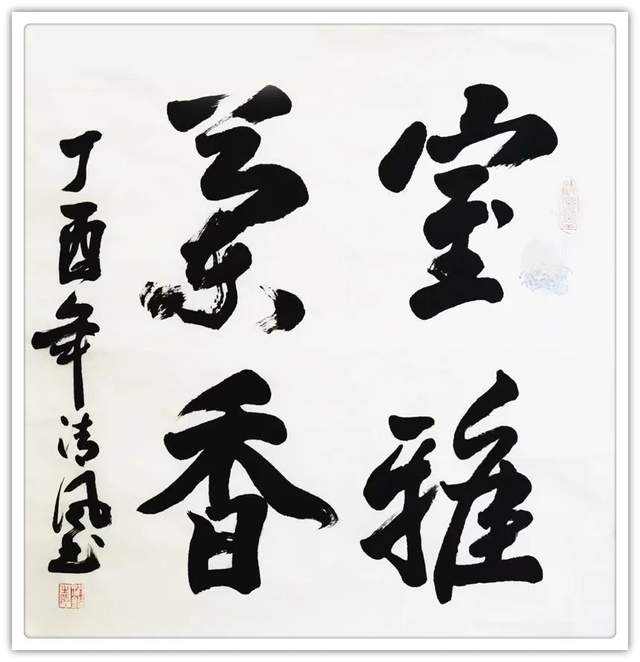 室雅
蘭香
丁酉年清风书